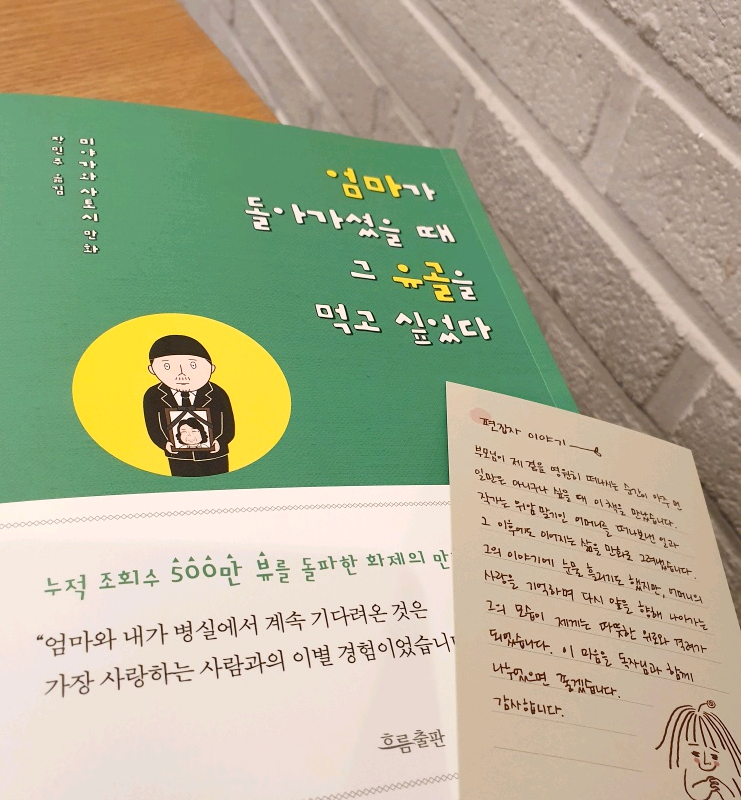 엄마가
돌아가셨을 때
그 유골을
먹고 싶었다
미야가와 사토시 만화
장민주 옮김
누적 조회수 500만 뷰를 돌파한 화제의 만
“엄마와 내가 병실에서 계속 기다려온 것은
가장 사랑하는 사람과의 이별 경험이었습니
흐름출판
편집자 이야기
부모님이 제 곁을 영원히 떠나시는 순간이 아주 먼
일만은 아니구나 싶을 때 이 책을 만났습니다.
작가는 위암 말기인 어머니를 떠나보낸 일과
그 이후에도 이어지는 삶을 만화로 그려냈습니다.
그의 이야기에 눈물 흘리기도 했지만, 어머니의
사랑을 기억하며 다시 앞을 향해 나아가는
그의 모습이 제게는 따뜻한 위로와 격려가
되었습니다. 이 마음을 독자님과 함께
나눴으면 좋겠습니다.
감사합니다.